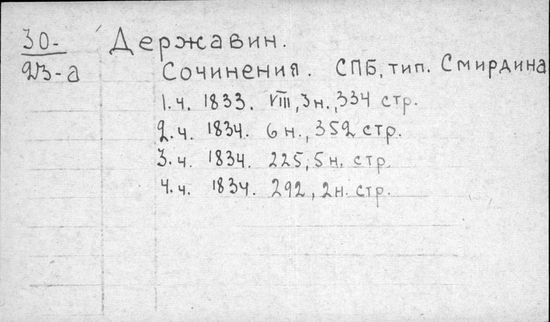 30-
23-а
Державин.
Сочинения. СПБ, тип. Смирдина
1.ч. 1833. VIII, 3н., 334 стр.
2.ч. 1834. 6 н., 352 стр.
3.ч. 1834. 225, 5н. стр.
4.ч. 1834. 292, 2н. стр.